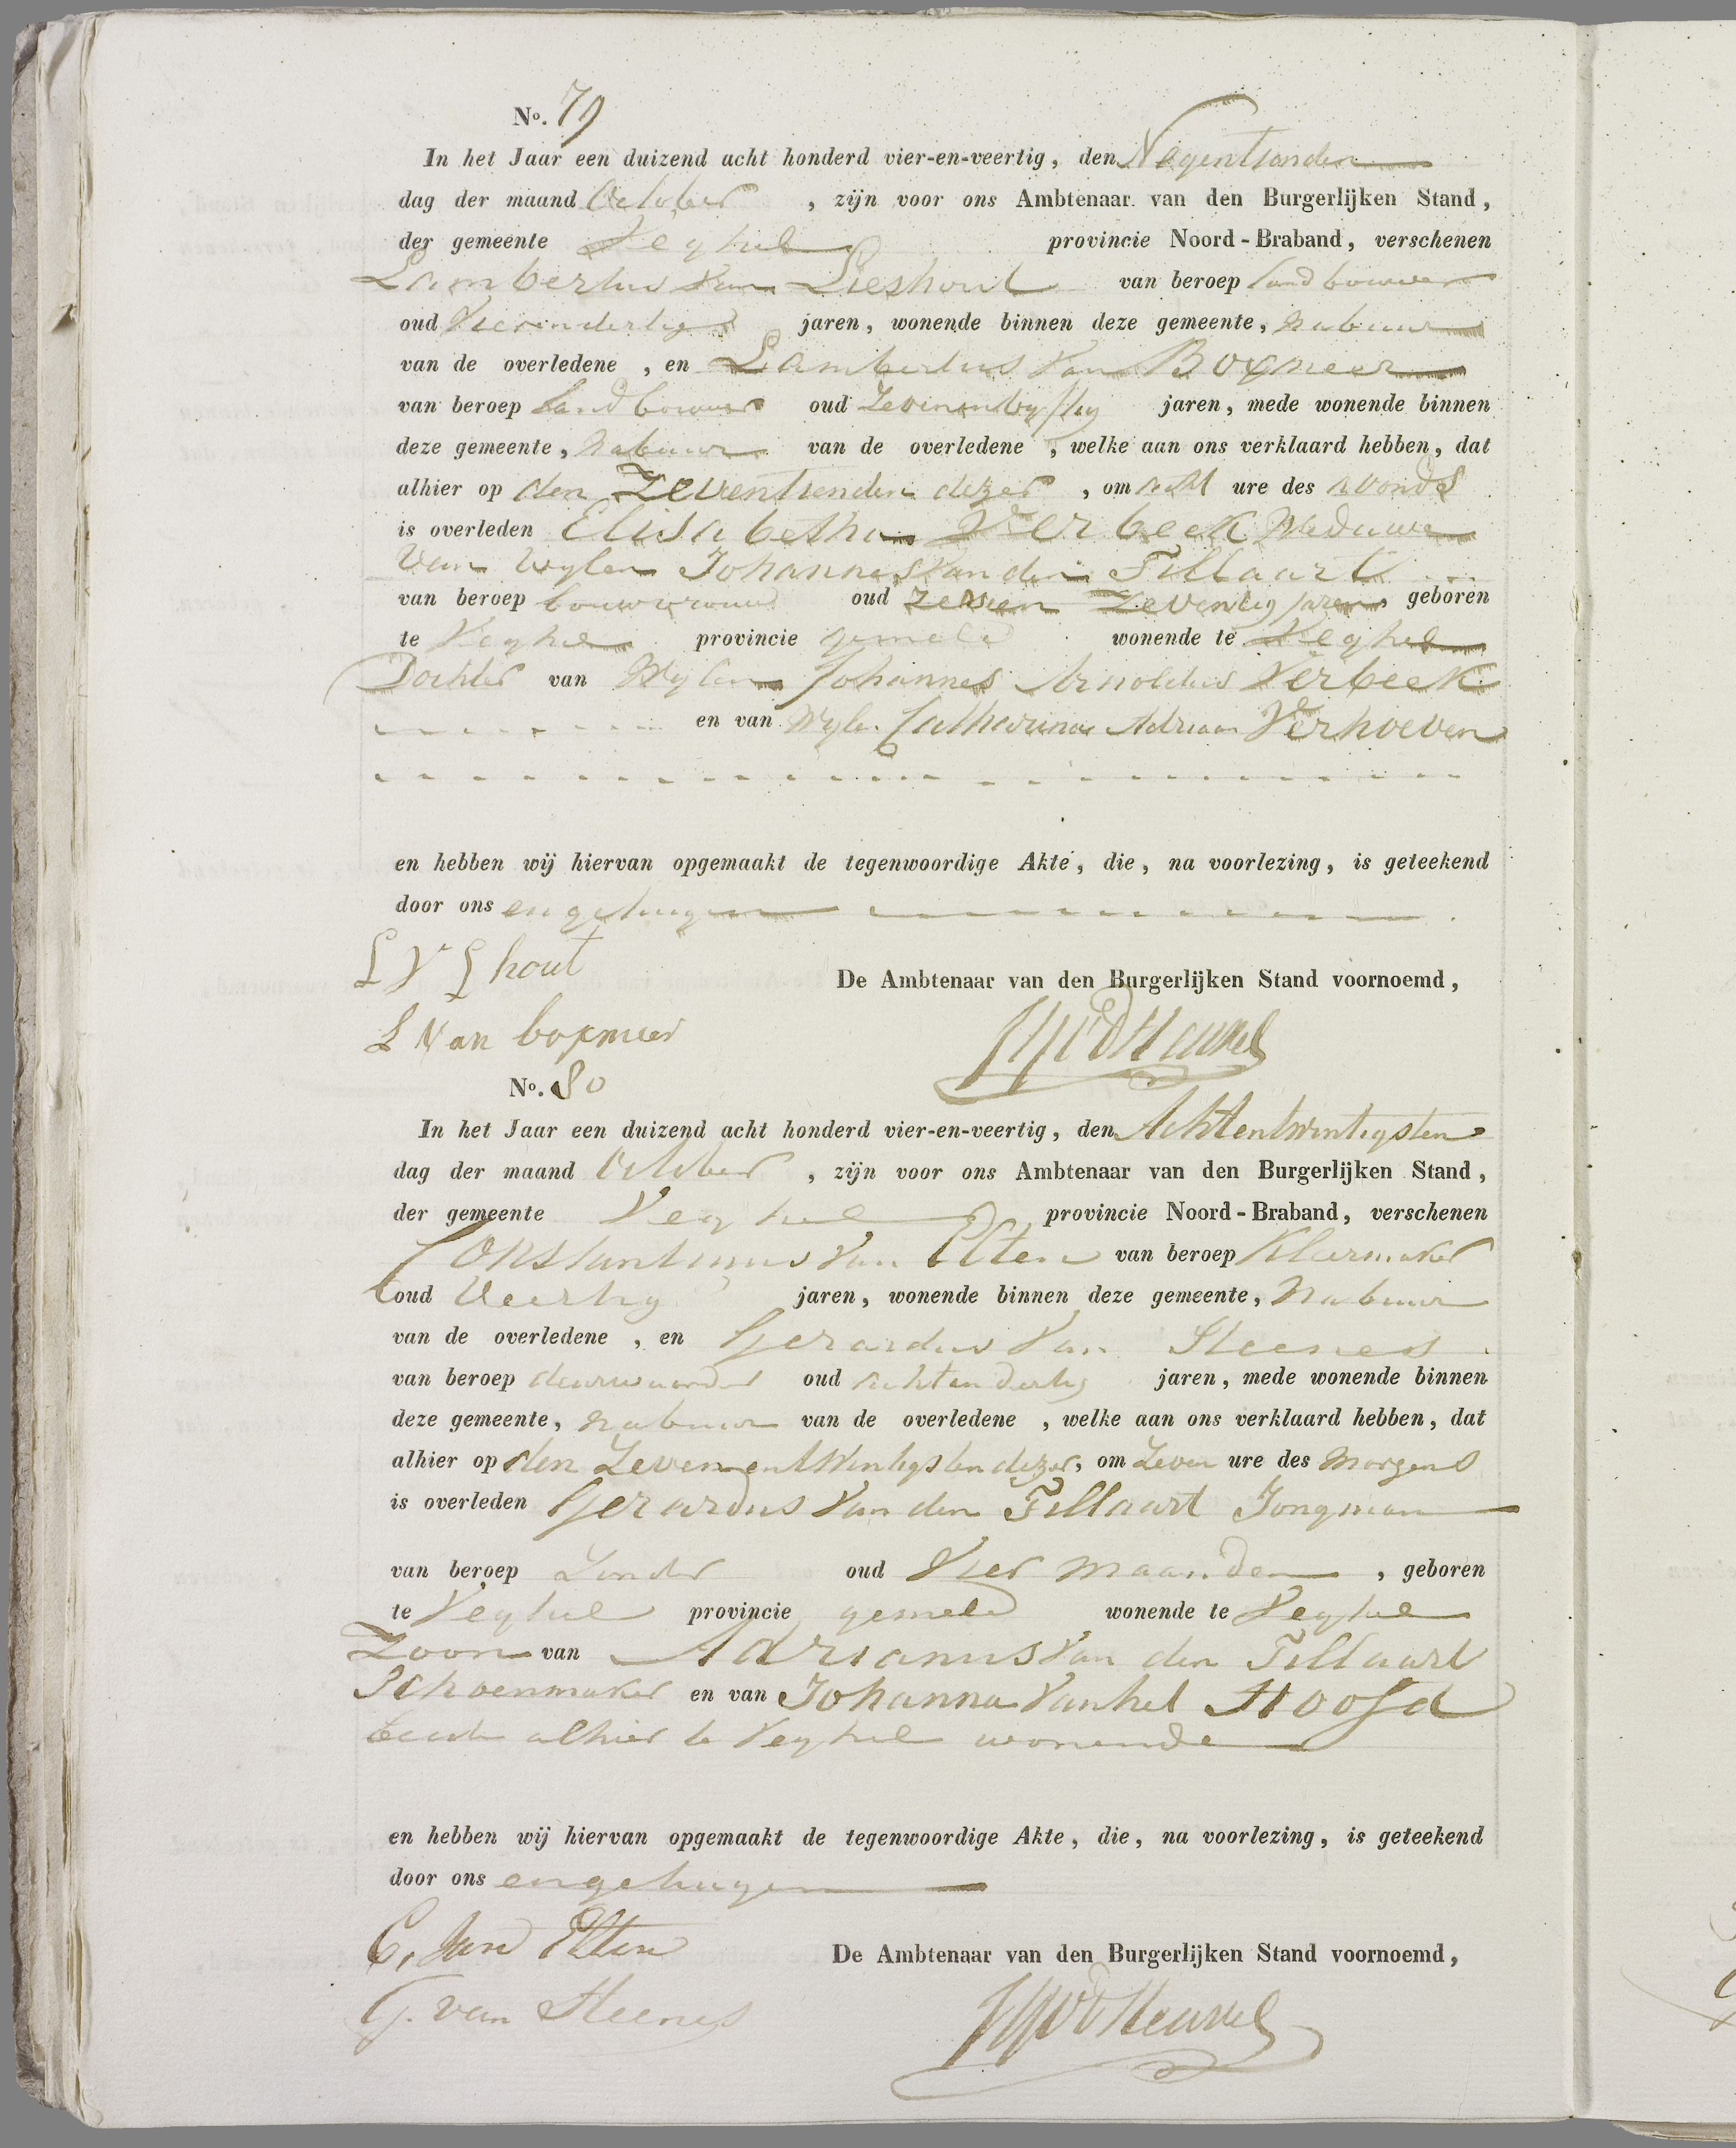 No. 79
In het Jaar een duizend acht honderd vier-en-veertig, den Negentienden
dag der maand October , zijn voor ons Ambtenaar van den Burgerlijken Stand,
der gemeente Veghel provincie Noord-Braband, verschenen
Lambertus van Lieshout van beroep landbouwer
oud Vierendertig jaren, wonende binnen deze gemeente, nabuur
van de overledene , en Lambertus van Boxmeer
van beroep landbouwer oud Zevenenvyftig jaren, mede wonende binnen
deze gemeente, nabuur van de overledene , welke aan ons verklaard hebben, dat
alhier op den Zeventienden dezer , om acht ure des avonds
is overleden Elisabetha Verbeek Weduwe
van wylen Johannes van den Tillaart
van beroep bouwvrouw oud zessen Zeventig jaren, geboren
te Veghel provincie gemeld wonende te Veghel
Dochter van Wylen Johannes Arnoldus Verbeek
en van Wylen Catharina Adriaan Verhoeven
en hebben wij hiervan opgemaakt de tegenwoordige Akte, die, na voorlezing, is geteekend
door ons en getuigen
L V Lhout
De Ambtenaar van den Burgerlijken Stand voornoemd,
L Van boxmeer
No. 80
In het Jaar een duizend acht honderd vier-en-veertig, den Achtentwintigsten
dag der maand October , zijn voor ons Ambtenaar van den Burgerlijken Stand,
der gemeente Veghel provincie Noord-Braband, verschenen
Constantinus van Etten van beroep Kleermaker
oud Veertig jaren, wonende binnen deze gemeente, nabuur
van de overledene , en Gerardus van Steenes
van beroep deurwaarder oud achtendertig jaren, mede wonende binnen
deze gemeente, nabuur van de overledene , welke aan ons verklaard hebben, dat
alhier op den Zevenentwintigsten dezer, om Zeven ure des morgens
is overleden Gerardus van den Tillaart Jongman
van beroep Zonder oud Vier maanden , geboren
te Veghel provincie gemeld wonende te Veghel
Zoon van Adrianus van den Tillaart
Schoenmaker en van Johanna van het Hoofd
beide alhier te Veghel wonende
en hebben wij hiervan opgemaakt de tegenwoordige Akte, die, na voorlezing, is geteekend
door ons en getuigen
C. van Etten
De Ambtenaar van den Burgerlijken Stand voornoemd,
G. van Steenes